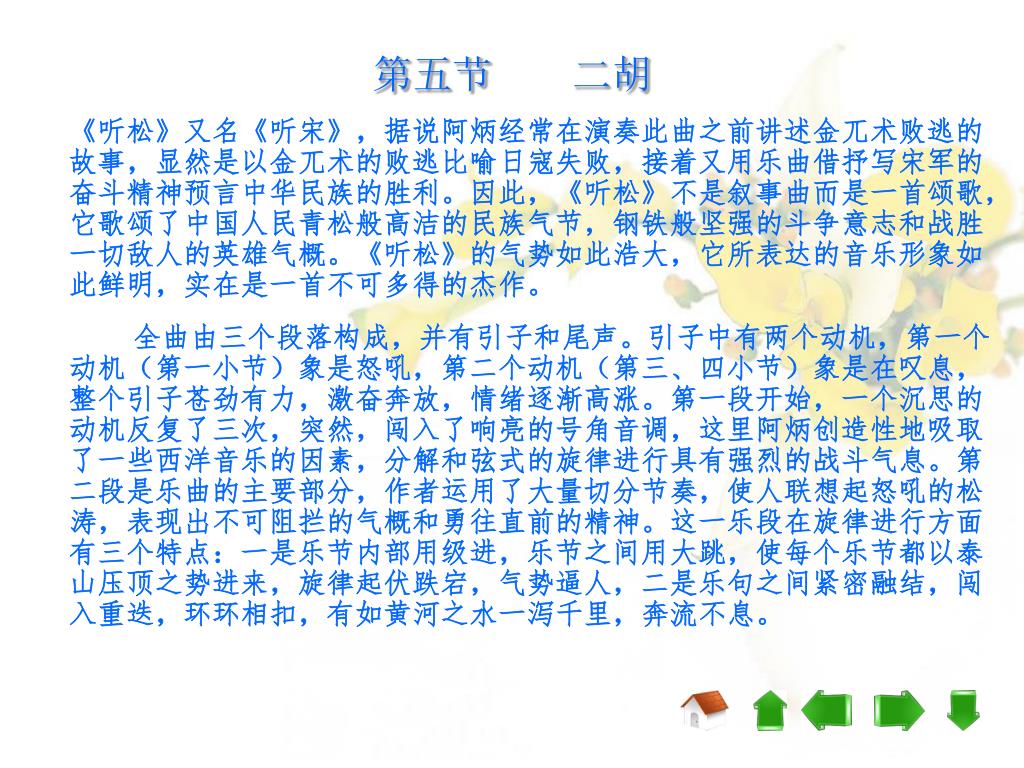 第五节　　二胡
《听松》又名《听宋》，据说阿炳经常在演奏此曲之前讲述金兀术败逃的
故事，显然是以金兀术的败逃比喻日寇失败，接着又用乐曲借抒写宋军的
奋斗精神预言中华民族的胜利。因此，《听松》不是叙事曲而是一首颂歌，
它歌颂了中国人民青松般高洁的民族气节，钢铁般坚强的斗争意志和战胜
一切敌人的英雄气概。《听松》的气势如此浩大，它所表达的音乐形象如
此鲜明，实在是一首不可多得的杰作。
全曲由三个段落构成，并有引子和尾声。引子中有两个动机，第一个
动机（第一小节）象是怒吼，第二个动机（第三、四小节）象是在叹息，
整个引子苍劲有力，激奋奔放，情绪逐渐高涨。第一段开始，一个沉思的
动机反复了三次，突然，闯入了响亮的号角音调，这里阿炳创造性地吸取
了一些西洋音乐的因素，分解和弦式的旋律进行具有强烈的战斗气息。第
二段是乐曲的主要部分，作者运用了大量切分节奏，使人联想起怒吼的松
涛，表现出不可阻拦的气概和勇往直前的精神。这一乐段在旋律进行方面
有三个特点：一是乐节内部用级进，乐节之间用大跳，使每个乐节都以泰
山压顶之势进来，旋律起伏跌宕，气势逼人，二是乐句之间紧密融结，闯
入重迭，环环相扣，有如黄河之水一泻千里，奔流不息。